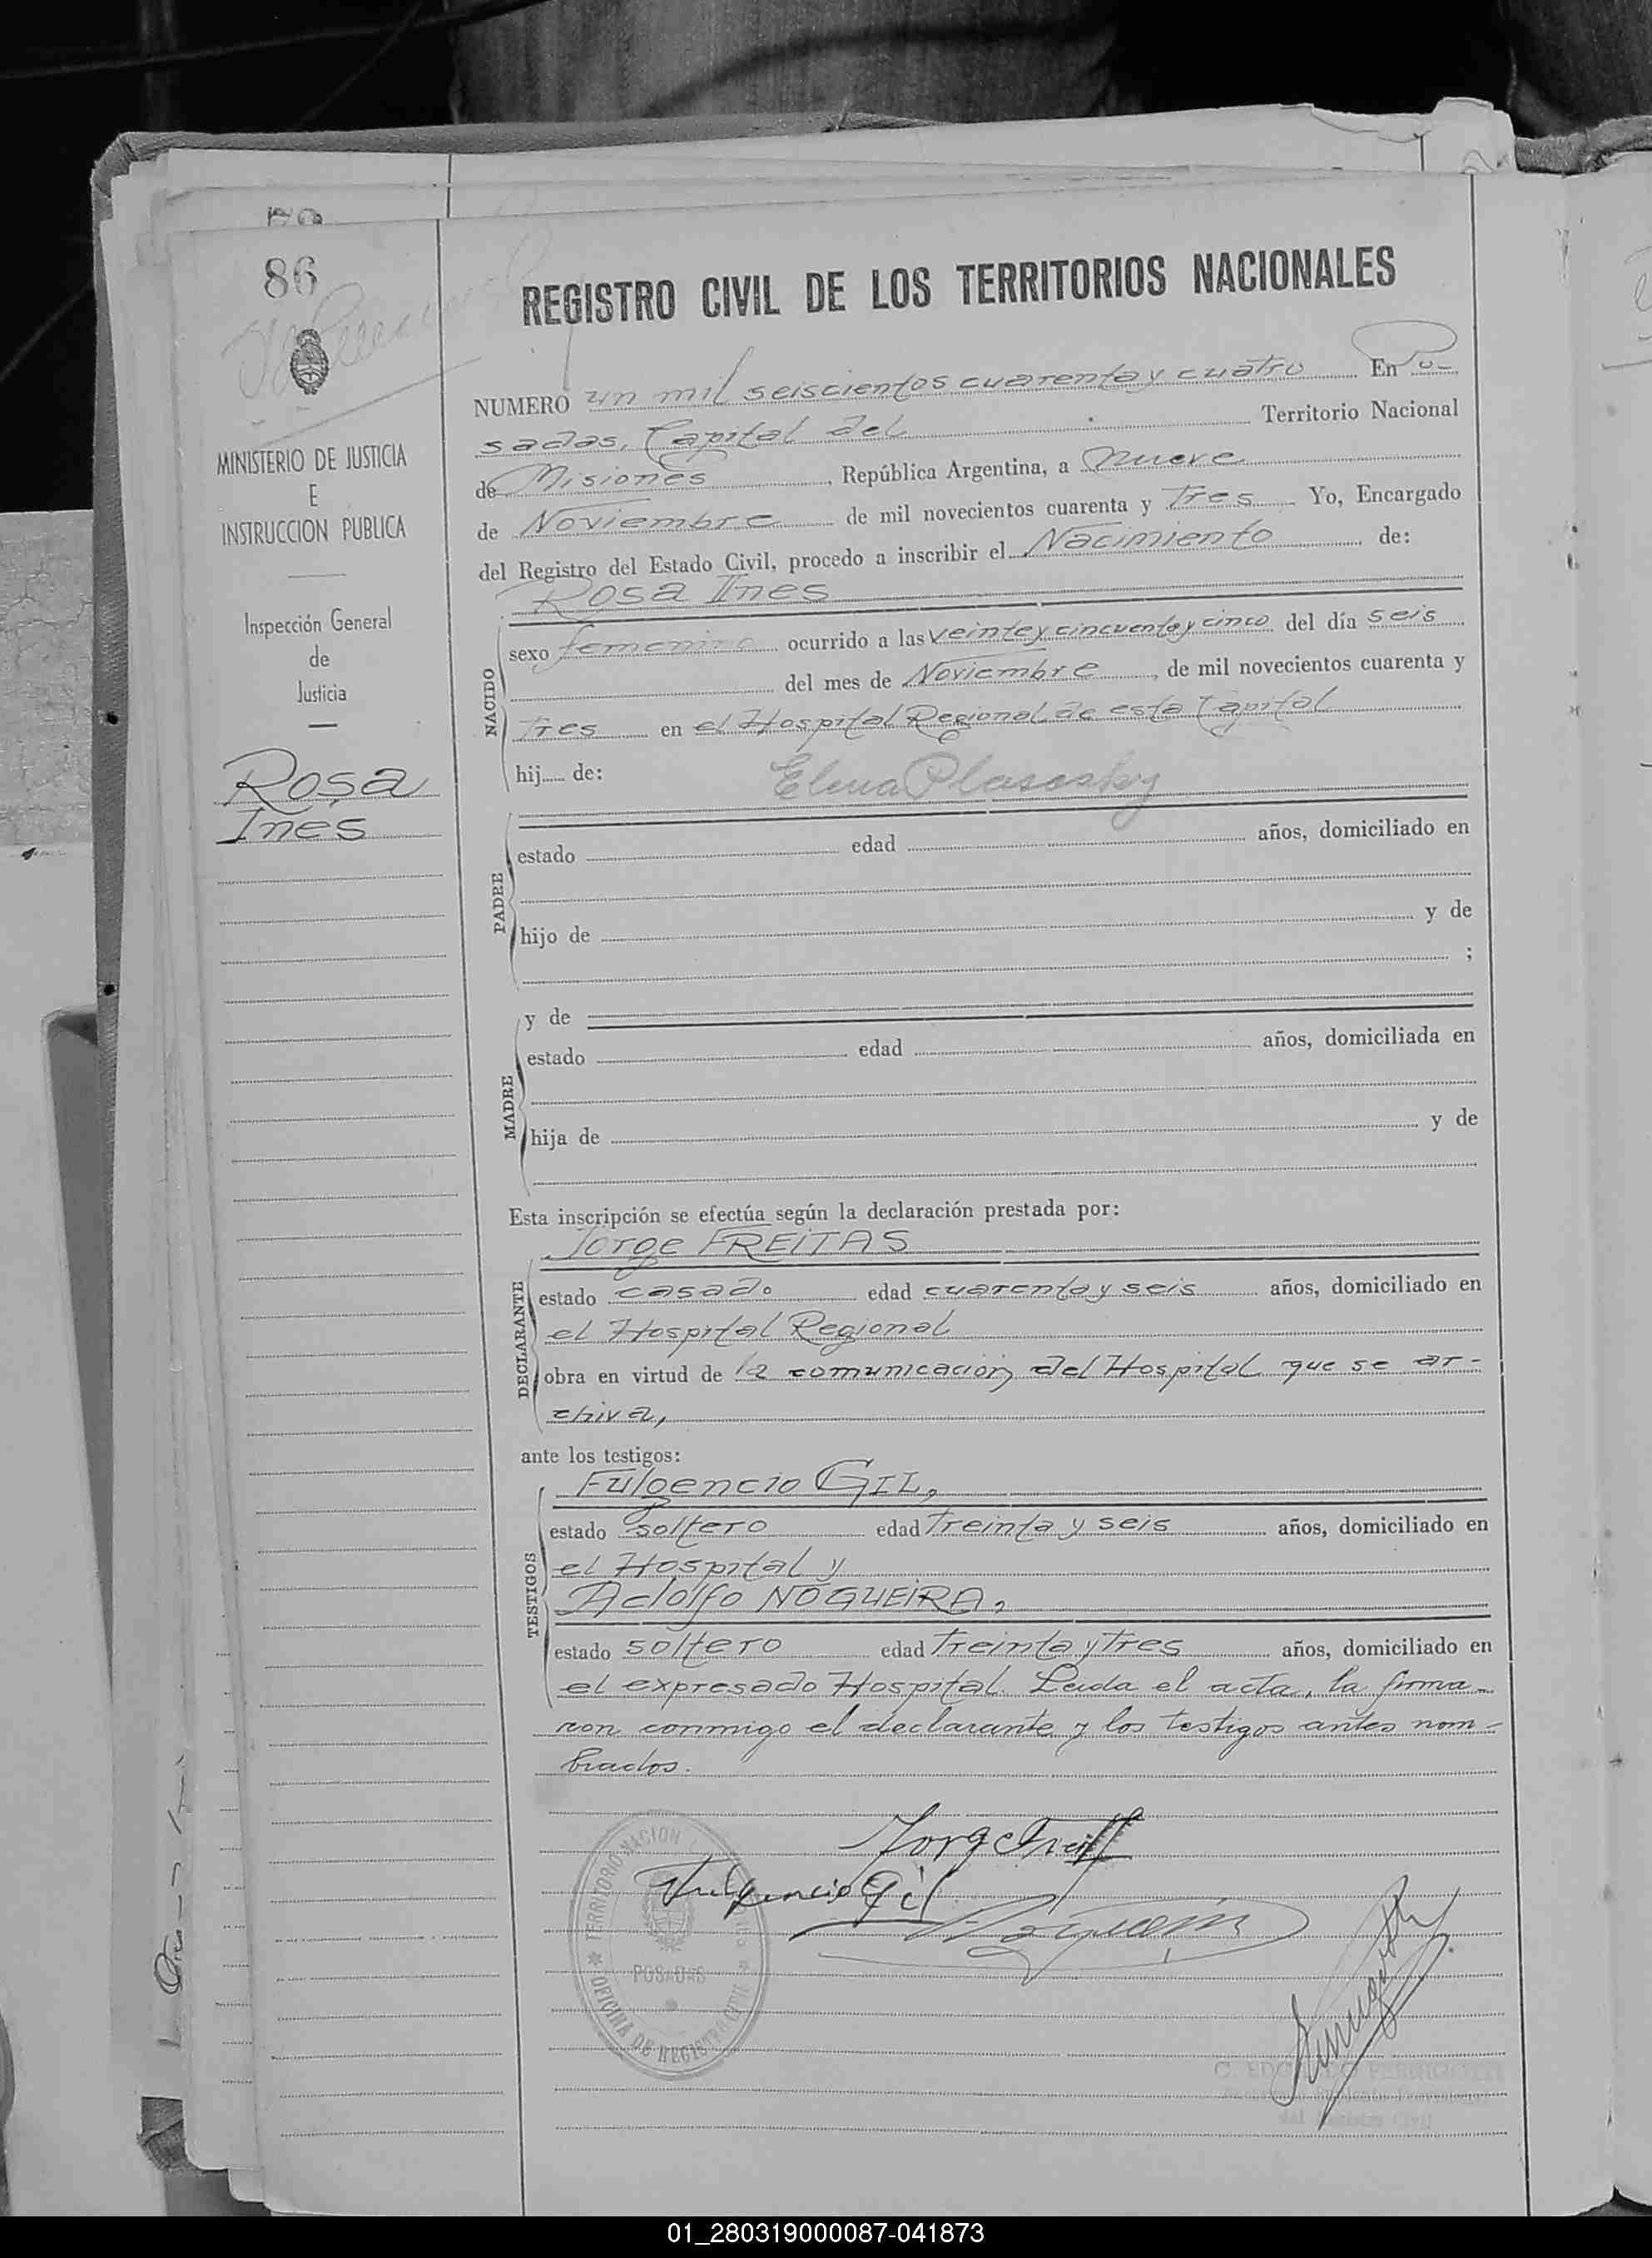 86
MINISTERIO DE JUSTICIA
E
INSTRUCCION PUBLICA
Inspección General
de
Justicia
Rosa
Ines
REGISTRO CIVIL DE LOS TERRITORIOS NACIONALES
NUMERO un mil seiscientos cuarenta y cuatro En Po-
sadas, Capital del Territorio Nacional
de Misiones, República Argentina, a nueve
de Noviembre de mil novecientos cuarenta y Tres Yo, Encargado
del Registro del Estado Civil, procedo a inscribir el Nacimiento de:
Rosa Ines
NACIDO
sexo femenino ocurrido a las veinte y cincuenta y cinco del día seis
del mes de Noviembre, de mil novecientos cuarenta y
Tres en el Hospital Regional de esta Capital
hij de:
Elena Plasesky
PADRE
estado edad años, domiciliado en
hijo de y de
;
MADRE
y de
estado edad años, domiciliada en
hija de y de
Esta inscripción se efectúa según la declaración prestada por:
Jorge FREITAS
DECLARANTE
estado casado edad cuarenta y seis años, domiciliado en
el Hospital Regional
obra en virtud de la comunicación del Hospital que se ar-
chiva,
ante los testigos:
TESTIGOS
Fulgencio GIL,
estado soltero edad Treinta y seis años, domiciliado en
el Hospital y
Adolfo NOGUEIRA,
estado soltero edad Treinta y Tres años, domiciliado en
el expresado Hospital. Leida el acta, la firma-
ron conmigo el declarante y los testigos antes nom-
brados.
Jorge Freitas
Fulgencio Gil
TERRITORIO NACION
POSADAS
OFICINA DE REGISTRO CIVIL
del Registro Civil
01_280319000087-041873